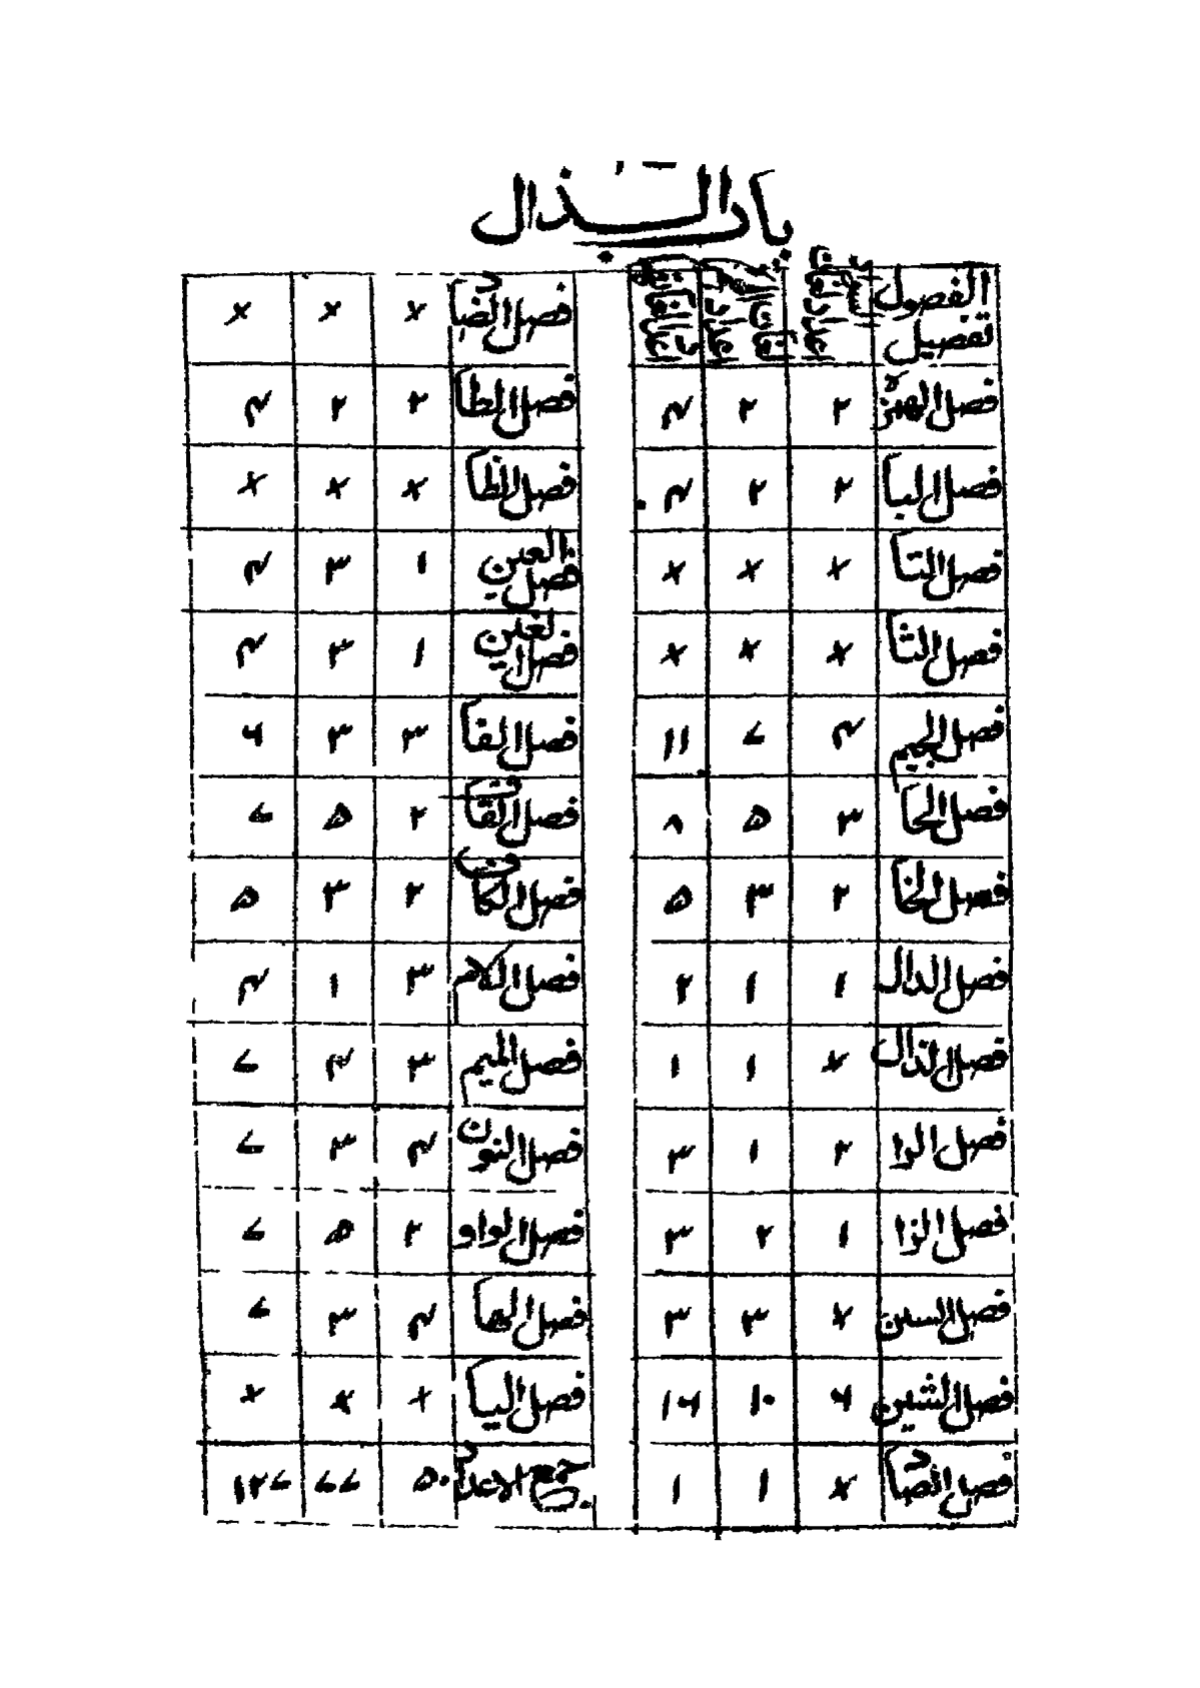 باب الذال
تفصيل الفصول
فصل الهمزة ٢ ٢ ۴
فصل البا ٢ ٢ ۴
فصل التا × × ×
فصل الثا × × ×
فصل الجيم ۴ ٧ ١١
فصل الحا ٣ ۵ ٨
فصل الخا ٢ ٣ ۵
فصل الدال ١ ١ ٢
فصل الذال × ١ ١
فصل الرا ٢ ١ ٣
فصل الزا ١ ٢ ٣
فصل السين × ٣ ٣
فصل الشين ۶ ١٠ ١۶
فصل الصاد × ١ ١
فصل الضاد × × ×
فصل الطا ٢ ٢ ۴
فصل الظا × × ×
فصل العين ١ ٣ ۴
فصل الغين ١ ٣ ۴
فصل الفا ٣ ٣ ۶
فصل القاف ٢ ۵ ٧
فصل الكاف ٢ ٣ ۵
فصل اللام ٣ ١ ۴
فصل الميم ٣ ۴ ٧
فصل النون ۴ ٣ ٧
فصل الواو ٢ ۵ ٧
فصل الها ۴ ٣ ٧
فصل اليا × × ×
جمع الاعداد ۵٠ ٧٧ ١٢٧